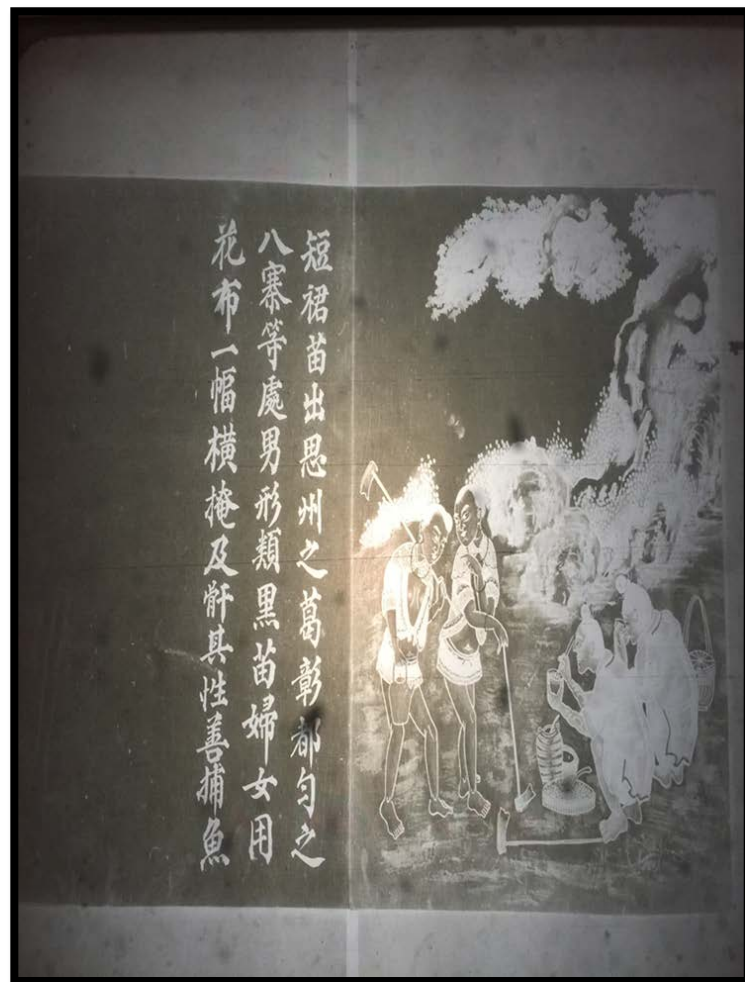 短裙苗出思州之葛彰都勻之
八寨等處男形類黑苗婦女用
花布一幅橫掩及骭其性善捕魚